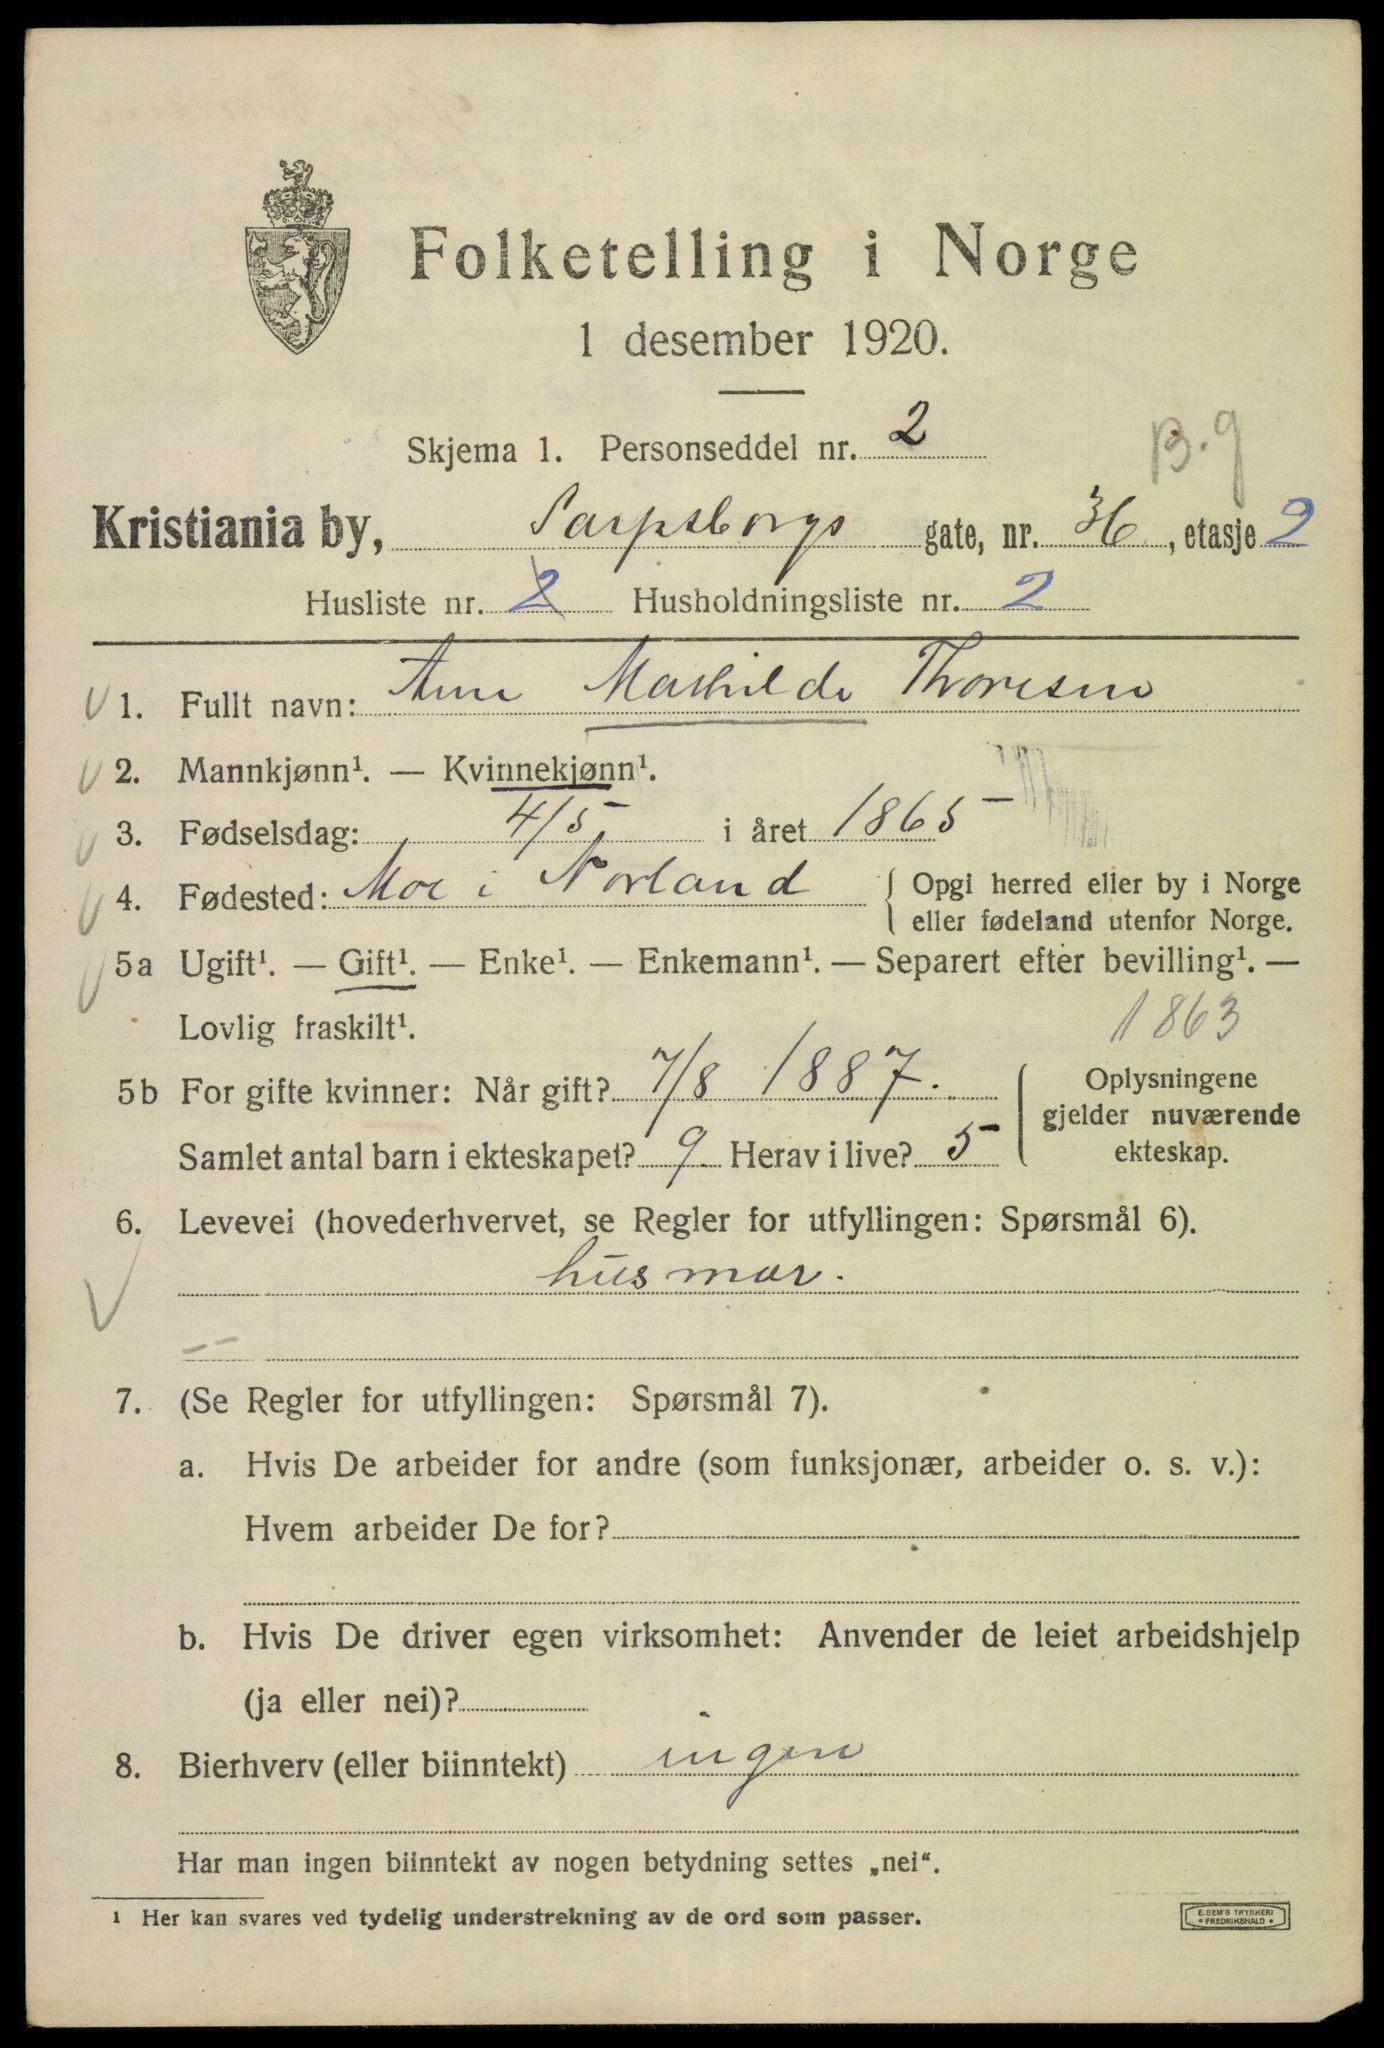 Folketelling i Norge
1 desember 1920.
Skjema 1. Personseddel nr. 2
B.9
Kristiania by, Sarpsborgs gate, nr. 36, etasje 2
Husliste nr. 2 Husholdningsliste nr. 2
1. Fullt navn: Anne Mathilde Thoresen
2. Mannkjønn¹. — Kvinnekjønn¹.
3. Fødselsdag: 4/5 i året 1865
4. Fødested: Moe i Norland { Opgi herred eller by i Norge
eller fødeland utenfor Norge.
5a Ugift¹. — Gift¹. — Enke¹. — Enkemann¹. — Separert efter bevilling¹. —
Lovlig fraskilt¹.
1863
5b For gifte kvinner: Når gift? 7/8 1887.
Samlet antal barn i ekteskapet? 9 Herav i live? 5
{ Oplysningene
gjelder nuværende
ekteskap.
6. Levevei (hovederhvervet, se Regler for utfyllingen: Spørsmål 6).
husmor.
7. (Se Regler for utfyllingen: Spørsmål 7).
a. Hvis De arbeider for andre (som funksjonær, arbeider o. s. v.):
Hvem arbeider De for?
b. Hvis De driver egen virksomhet: Anvender de leiet arbeidshjelp
(ja eller nei)?
8. Bierhverv (eller biinntekt) ingen
Har man ingen biinntekt av nogen betydning settes „nei“.
1 Her kan svares ved tydelig understrekning av de ord som passer.
E. SEM'S TRYKKERI
• FREDRIKSHALD •